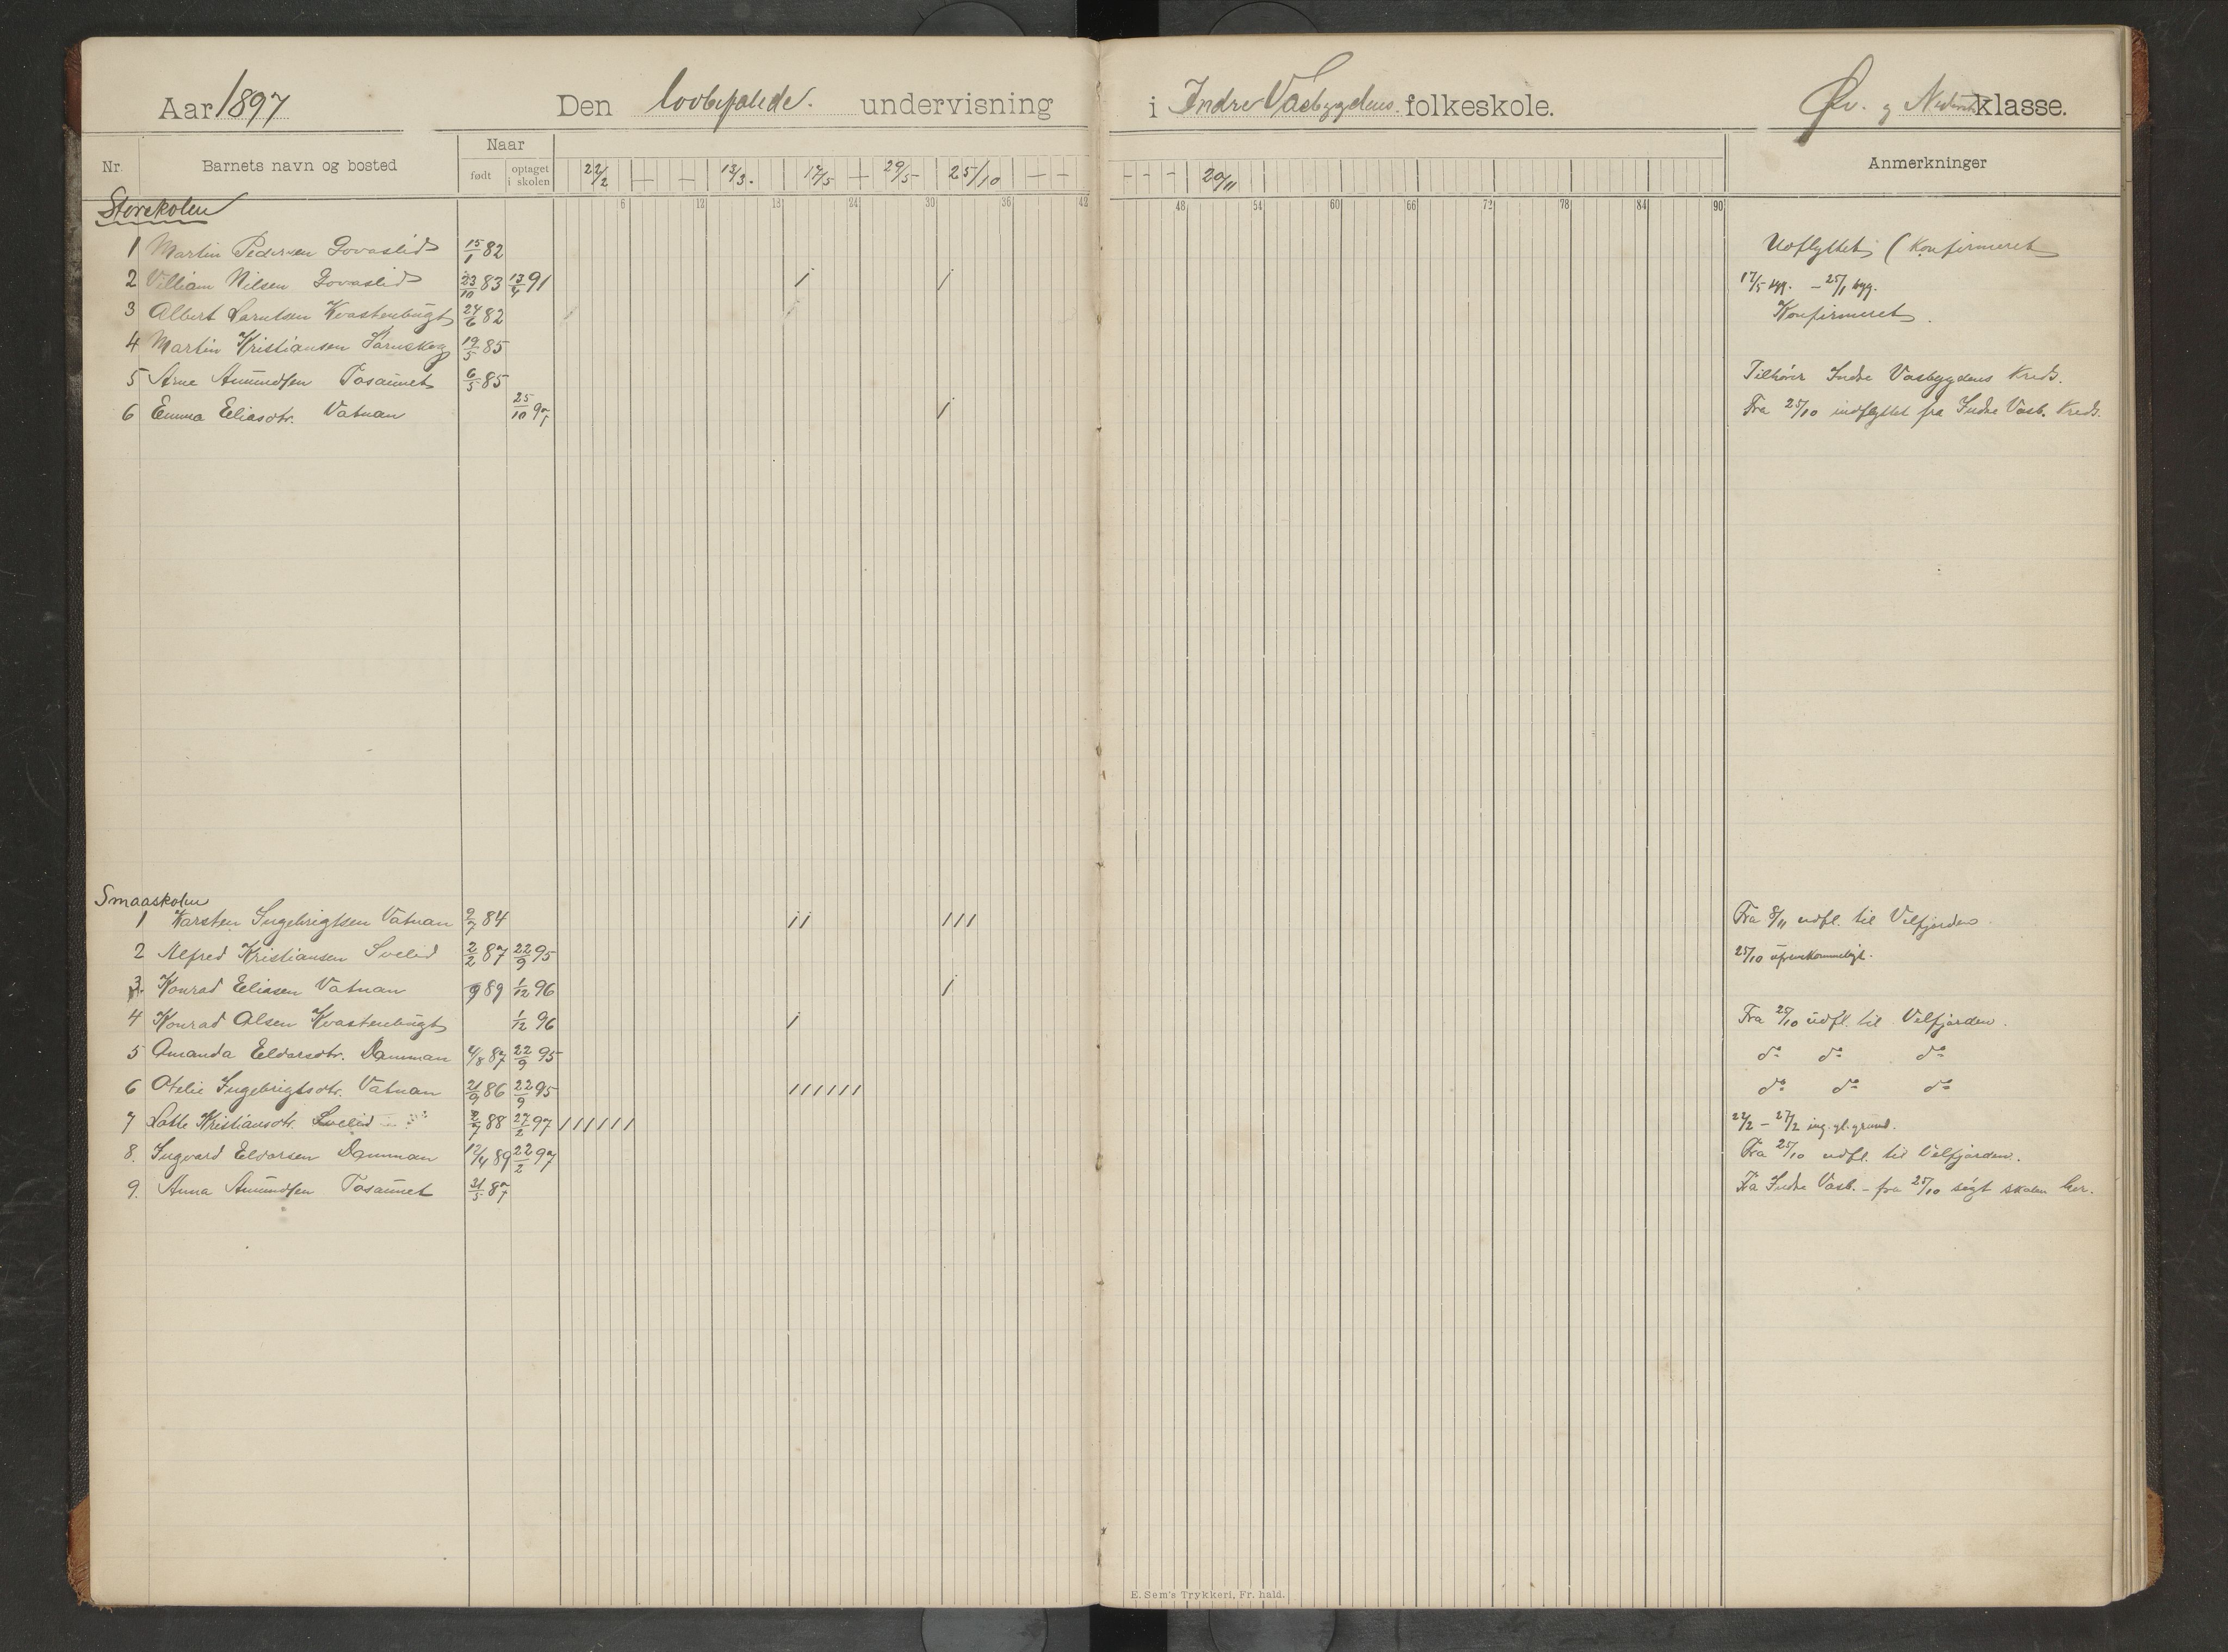 Aar 1897 Den lovbefalede. undervisning i Indre Vasbygdens folkeskole. Øv. og Nederste klasse.
Nr. Barnets navn og bosted Naar født optaget i skolen 22/2 — — 13/3. 17/5 — 29/5 25/10 — — — — — 20/11 Anmerkninger
6 12 18 24 30 36 42 48 54 60 66 72 78 84 90
Storskolen
1 Martin Pedersen Govaslid 15/1 82 Udflyttet (Konfirmeret
2 Villiam Nilsen Govaslid 23/10 83 13/4 91 / / 17/5 syg. – 25/1 syg.
3 Albert Larntsen Kvastenbugt 24/6 82 Konfirmeret.
4 Martin Kristiansen 19/5 85
5 Arne Amundsen Tosaunet 6/5 85 Tilhører Indre Vasbygdens Kreds.
6 Emma Eliasdtr. Vatnan 25/10 97 / Fra 25/10 indflyttet fra Indre Vasb. Kreds.
Smaaskolen
1 Karsten Ingebrigtsen Vatnan 9/7 84 // /// Fra 8/11 udfl. til Velfjorden
2 Alfred Kristiansen Svelid 2/2 87 22/9 95 25/10
3. Konrad Eliasen Vatnan 9 89 1/12 96 /
4 Konrad Olsen Kvastenbugt 1/12 96 / Fra 25/10 udfl. til Velfjorden.
5 Amanda Eldorsdtr. Danman 4/8 87 22/9 95 do do do
6 Otelie Ingebrigtsdtr. Vatnan 21/9 86 22/9 95 ////// do do do
7 Lotte Kristiansdtr. Svelid 8/7 88 27/2 97 ////// 22/2 – 27/2
8. Ingvard Eldorsen Danman 12/4 89 22/2 97 Fra 25/10 udfl. til Velfjorden.
9. Anna Amundsen Tosaunet 31/5 87 Fra Indre Vasb. – fra 25/10 søgt skolen her.
E. Sem's Trykkeri, Fr. hald.